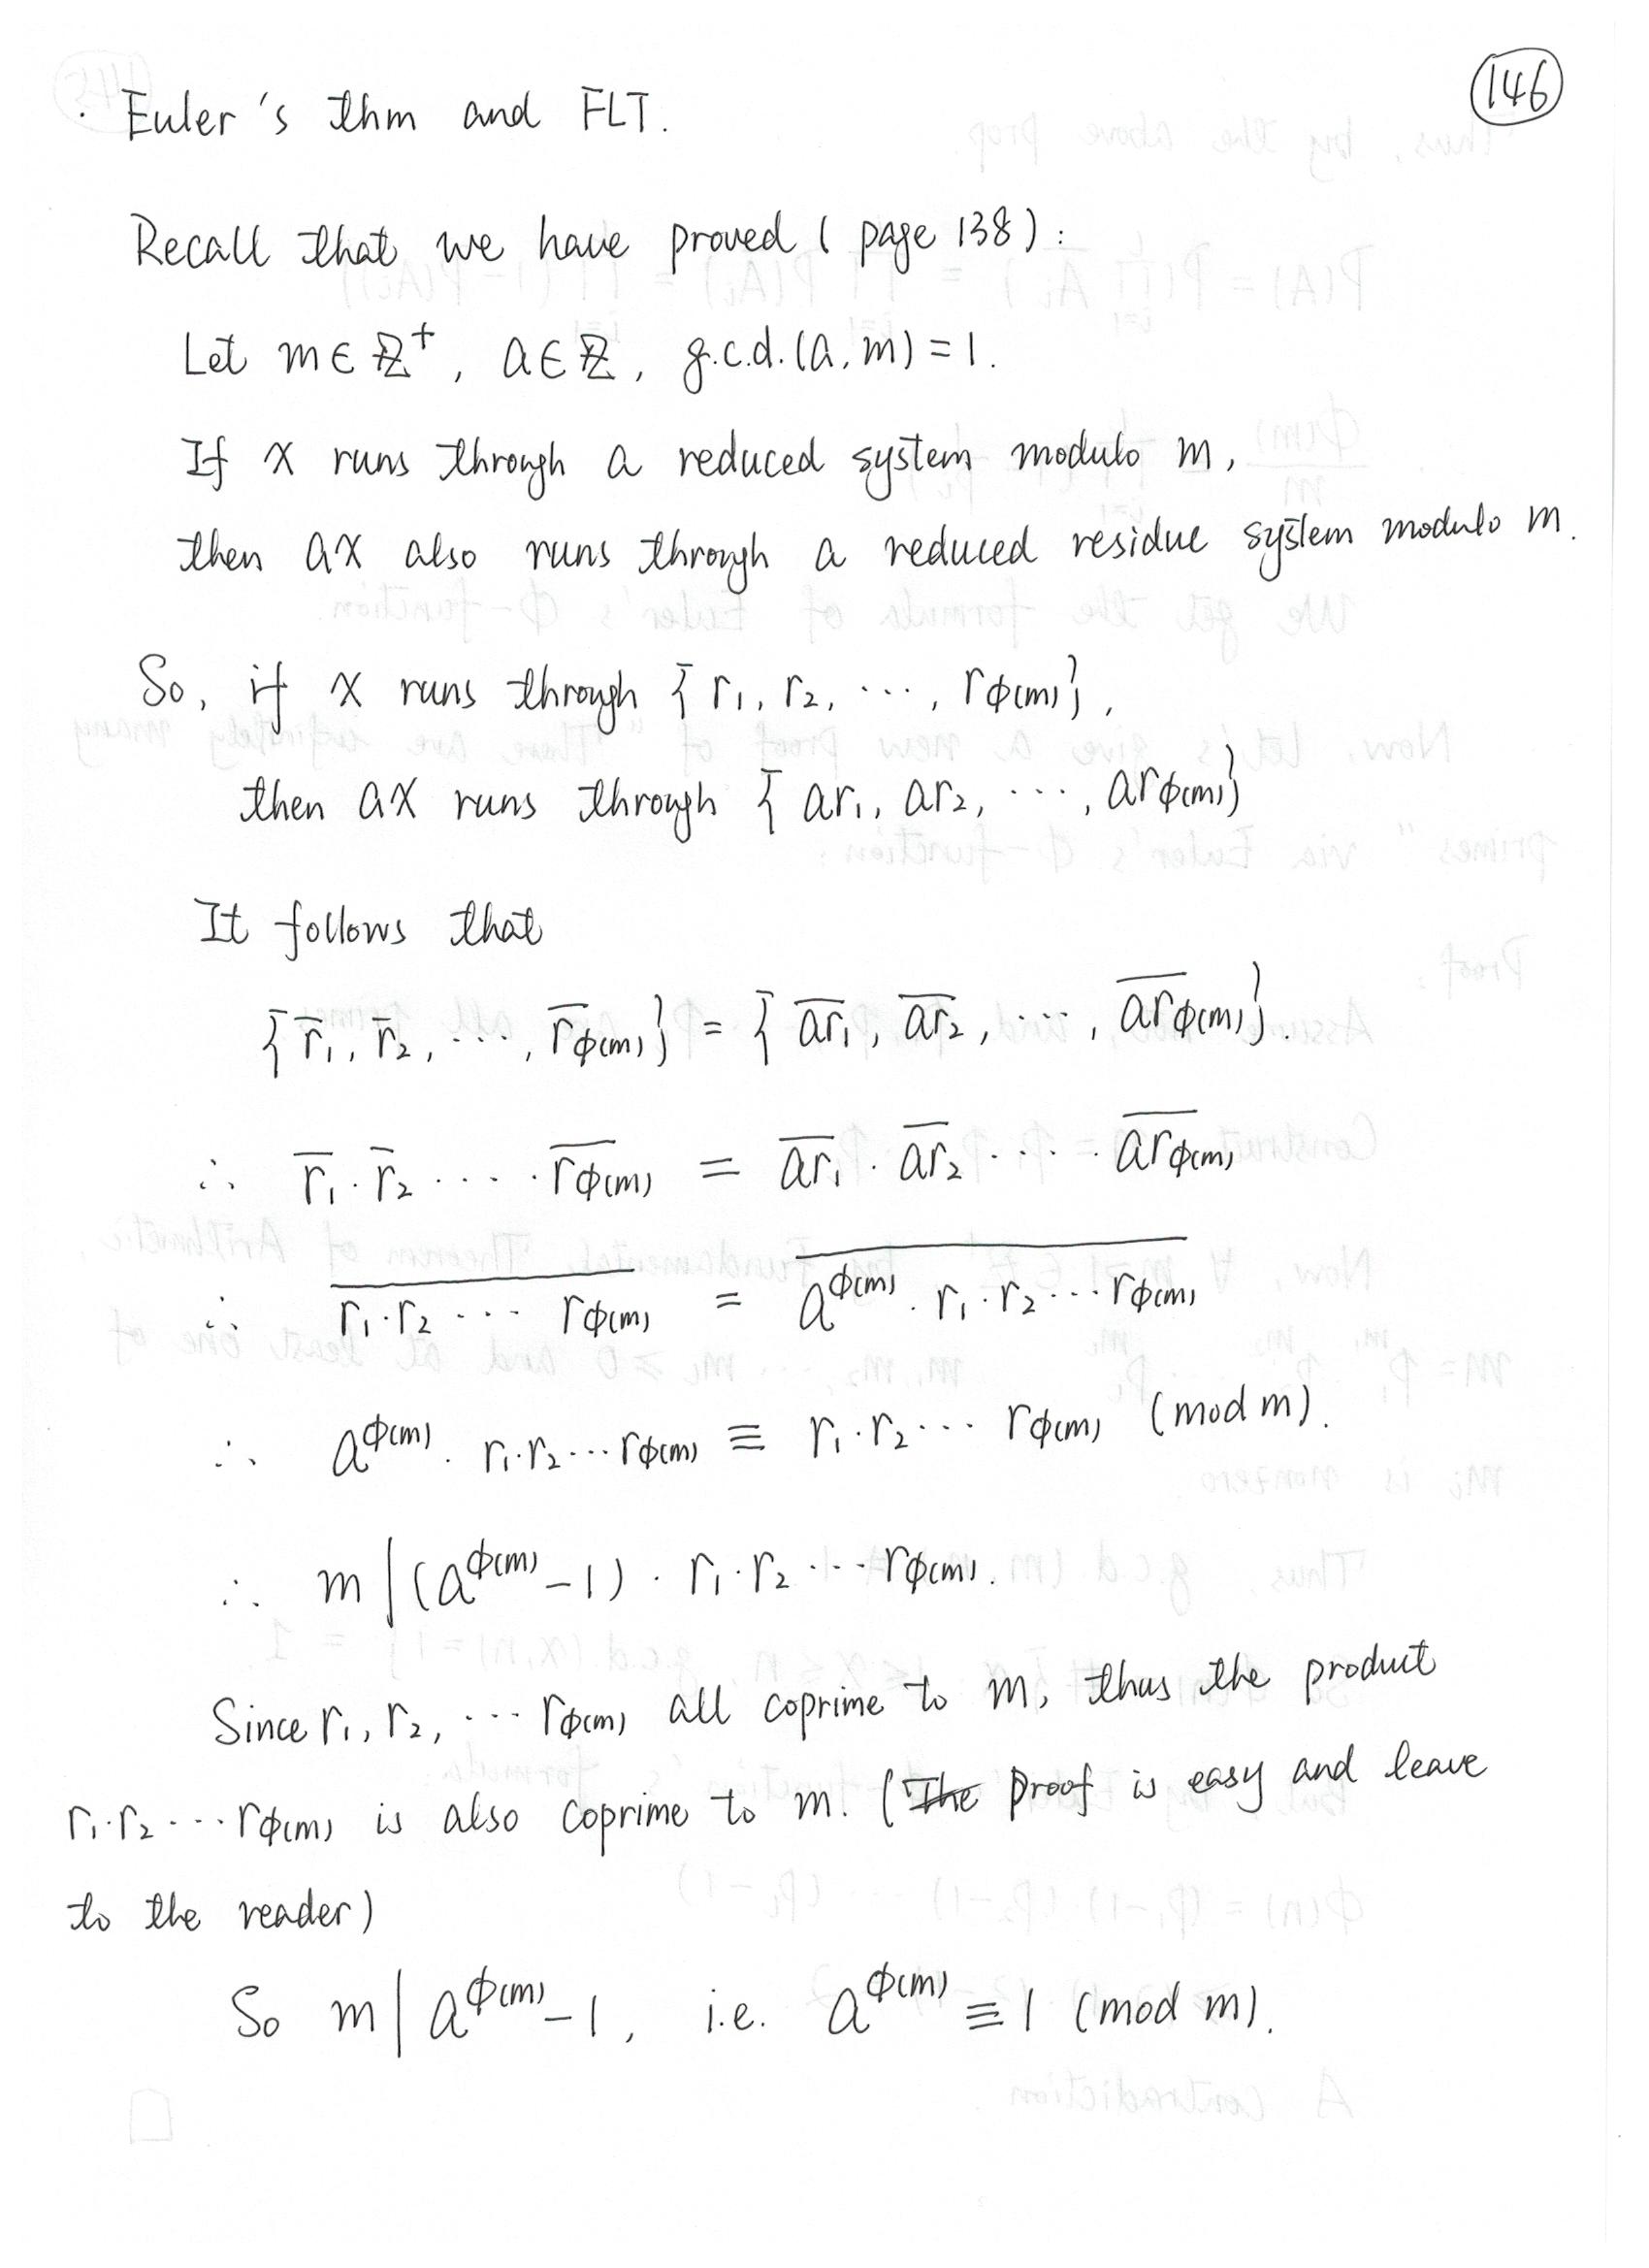 146
· Euler's thm and FLT.
Recall that we have proved ( page 138 ) :
Let m ∈ ℤ⁺, a ∈ ℤ, g.c.d.(a, m) = 1.
If x runs through a reduced system modulo m,
then ax also runs through a reduced residue system modulo m.
So, if x runs through {r₁, r₂, ⋯, r_φ(m)},
then ax runs through {ar₁, ar₂, ⋯, ar_φ(m)}
It follows that
{r̅₁, r̅₂, ⋯, r̅_φ(m)} = {a̅r̅₁, a̅r̅₂, ⋯, a̅r̅_φ(m)}.
∴ r̅₁ · r̅₂ ⋯ · r̅_φ(m) = a̅r̅₁ · a̅r̅₂ ⋯ · a̅r̅_φ(m)
∴ \overline{r₁ · r₂ ⋯ r_φ(m)} = \overline{a^φ(m) · r₁ · r₂ ⋯ r_φ(m)}
∴ a^φ(m) · r₁ · r₂ ⋯ r_φ(m) ≡ r₁ · r₂ ⋯ r_φ(m) (mod m).
∴ m | (a^φ(m) − 1) · r₁ · r₂ ⋯ r_φ(m).
Since r₁, r₂, ⋯ r_φ(m) all coprime to m, thus the product
r₁ · r₂ ⋯ r_φ(m) is also coprime to m. (The Proof is easy and leave
to the reader)
So m | a^φ(m) − 1, i.e. a^φ(m) ≡ 1 (mod m).